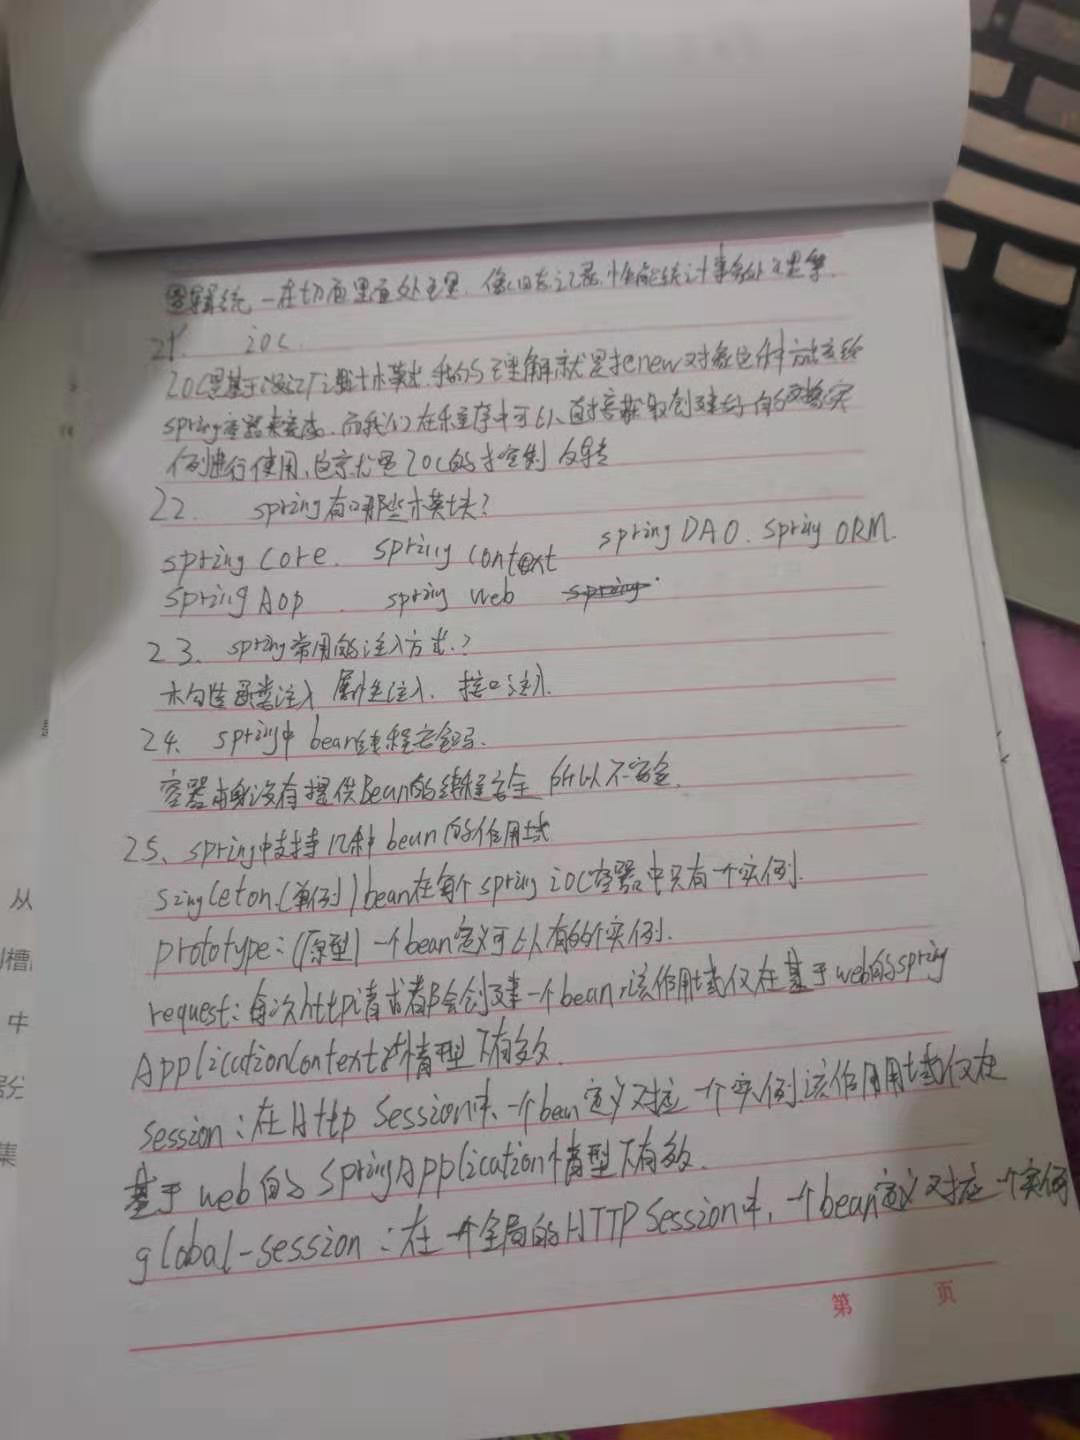 逻辑统一在切面里面处理,像日志记录,性能统计事务处理等.
21. ioc.
IOC是基于设计模式,我的理解就是把new对象这件方法交给
spring容器来完成.而我们在程序中可以直接获取创建好的对象实
例进行使用,这就是IOC的控制反转
22. spring有哪些模块?
spring Core. spring context spring DAO. spring ORM.
spring Aop. spring web
23. spring常用的注入方式.?
构造函数注入 属性注入. 接口注入.
24. spring中bean线程安全吗.
容器本身没有提供Bean的线程安全 所以不安全.
25、spring中支持几种bean的作用域
singleton.(单例)bean在每个spring ioc容器中只有一个实例.
prototype:(原型)一个bean定义可以有的个实例.
request:每次http请求都会创建一个bean,该作用域仅在基于web的spring
ApplicationContext情型下有效.
session:在Http Session中、一个bean定义对应一个实例.该作用用域仅在
基于web的SpringApplication情型下有效.
global-session:在一个全局的HTTP Session中,一个bean定义对应一个实例
第 页
从
槽
中
集